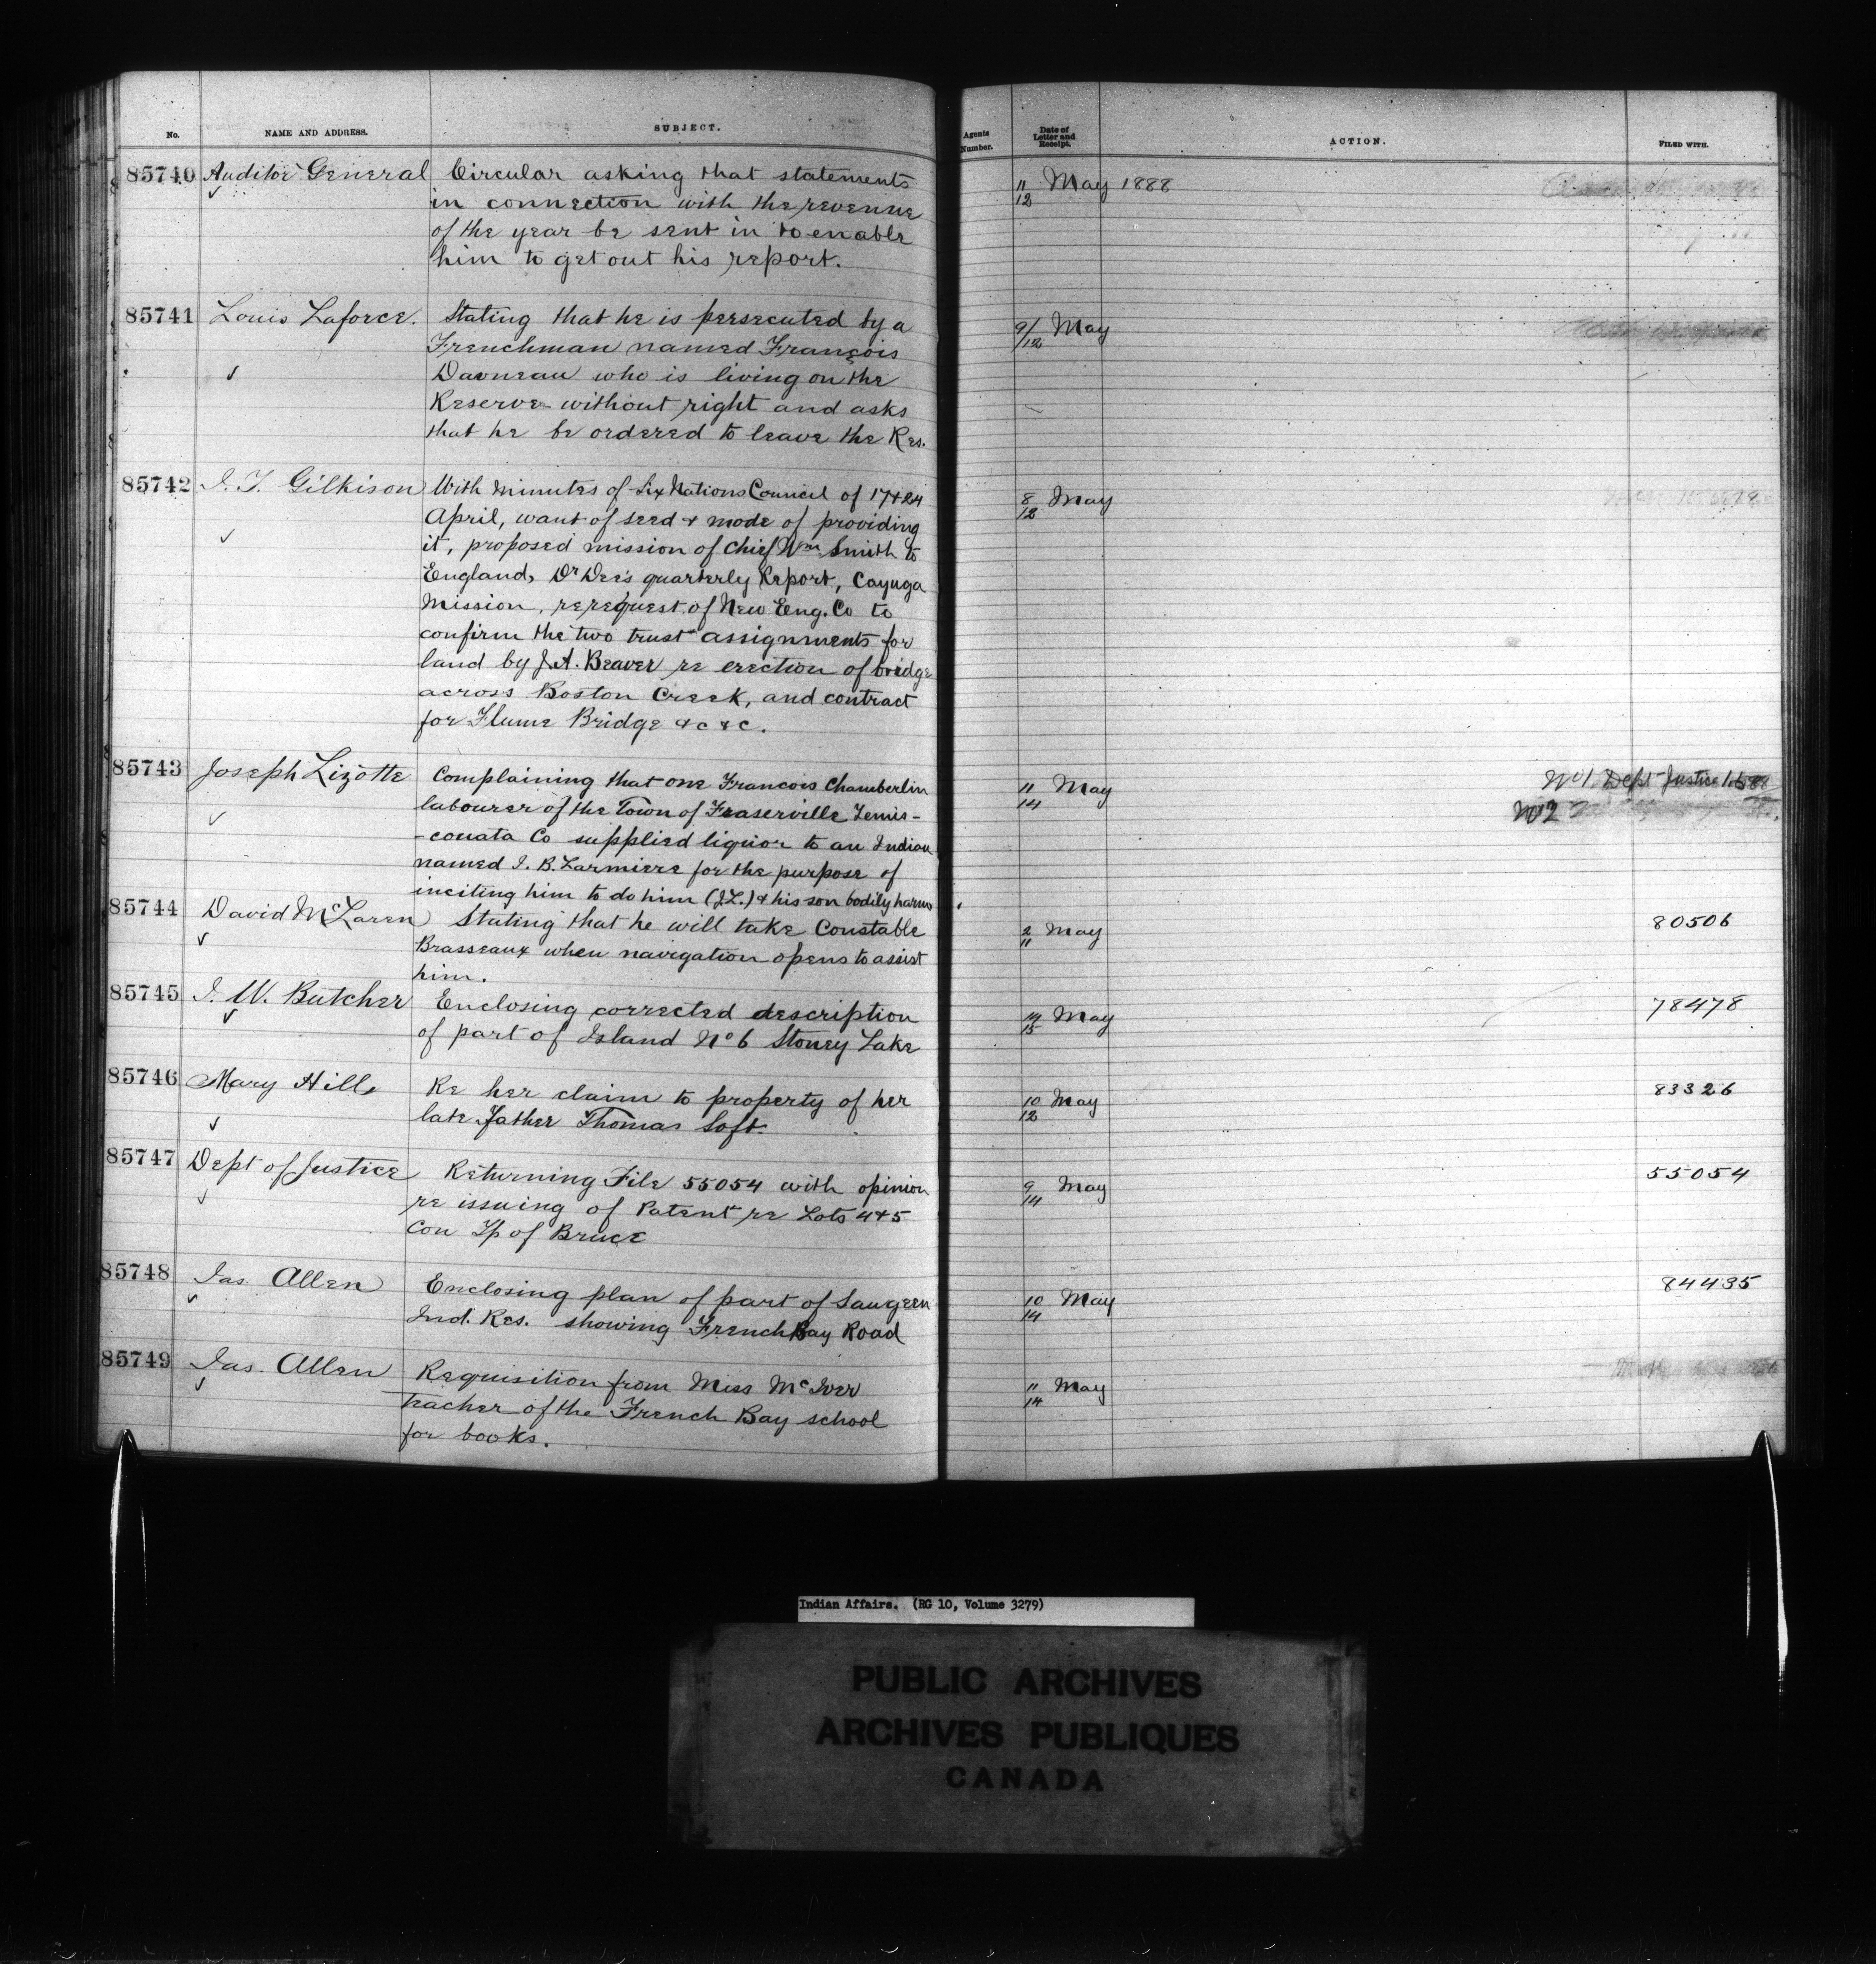 No. NAME AND ADDRESS. SUBJECT. Agents Number. Date of Letter and Receipt. ACTION. FILED WITH.
85740 Auditor General Circular asking that statements 11/12 May 1888
in connection with the revenue
of the year be sent in to enable
him to get out his report.
85741 Louis Laforce. Stating that he is persecuted by a 9/12 May
Frenchman named François
Davneau who is living on the
Reserve without right and asks
that he be ordered to leave the Res.
85742 J. T. Gilkison With minutes of Six Nations Council of 17 & 24 8/12 May
April, want of seed & mode of providing
it, proposed mission of Chief Wm Smith to
England, Dr Dee's quarterly Report, Cayuga
Mission, re request of New Eng. Co to
confirm the two trust assignments for
land by J.A. Beaver re erection of bridge
across Boston Creek, and contract
for Flume Bridge &c &c.
85743 Joseph Lizotte Complaining that one Francois Chamberlin 11/14 May No 1 Dept Justice
labourer of the Town of Fraserville Temis- No 2
-couata Co supplied liquor to an Indian
named J. B. Larmiere for the purpose of
inciting him to do him (J.L.) & his son bodily harm
85744 David McLaren Stating that he will take Constable 2/11 May 80506
Brasseaux when navigation opens to assist
him.
85745 J. W. Butcher Enclosing corrected description 14/15 May 78478
of part of Island No 6 Stoney Lake
85746 Mary Hill Re her claim to property of her 10/12 May 83326
late father Thomas Loft.
85747 Dept of Justice Returning File 55054 with opinion 9/14 May 55054
re issuing of Patent re Lots 4 & 5
Con Tp of Bruce
85748 Jas. Allen Enclosing plan of part of Saugeen 10/14 May 84435
Ind. Res. showing French Bay Road
85749 Jas. Allen Requisition from Miss McIver 11/14 May
teacher of the French Bay school
for books.
Indian Affairs. (RG 10, Volume 3279)
PUBLIC ARCHIVES
ARCHIVES PUBLIQUES
CANADA